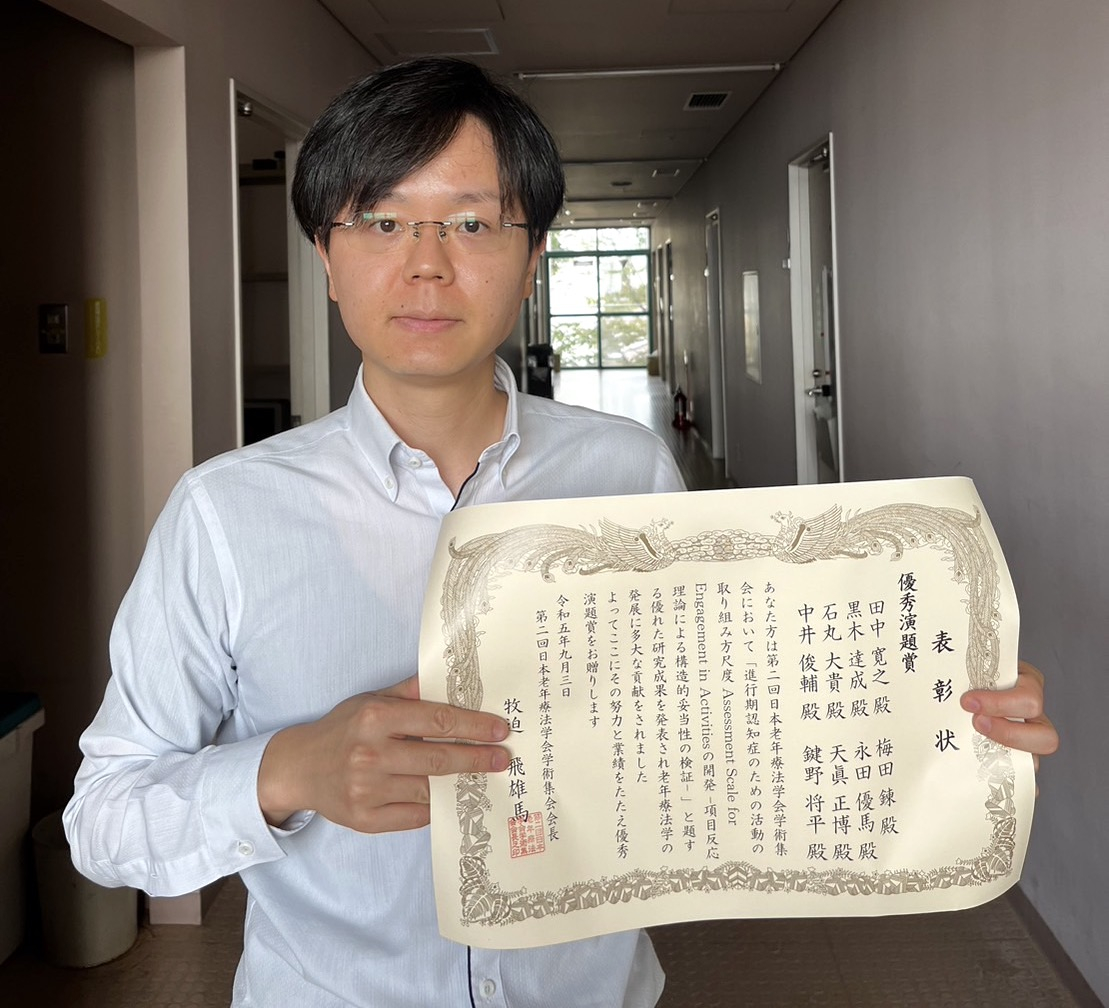 表彰状
優秀演題賞
田中 寛之 殿 梅田 錬 殿
黒木 達成 殿 永田 優馬 殿
石丸 大貴 殿 天眞 正博 殿
中井 俊輔 殿 鍵野 将平 殿
あなた方は第二回日本老年療法学会学術集
会において「進行期認知症のための活動の
取り組み方尺度 Assessment Scale for
Engagement in Activitiesの開発 -項目反応
理論による構造的妥当性の検証-」と題す
る優れた研究成果を発表され老年療法学の
発展に多大な貢献をされました
よってここにその努力と業績をたたえ優秀
演題賞をお贈りします
令和五年九月三日
第二回日本老年療法学会学術集会会長
牧迫 飛雄馬